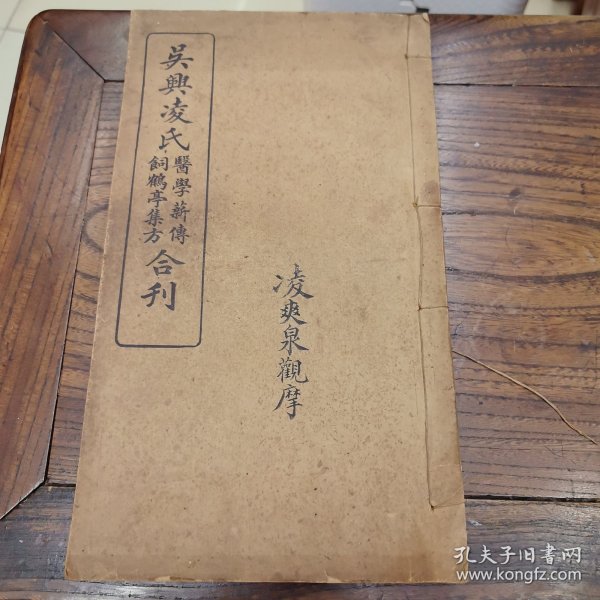 吳興凌氏
醫學薪傳
飼鶴亭集方
合刊
凌爽泉觀摩
孔夫子旧书网
www.kongfz.com